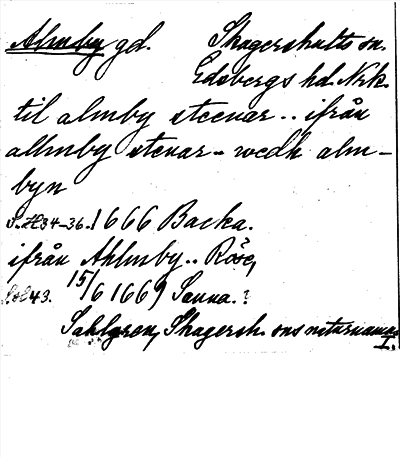 Almby gd. Skagershults sn.
Edsbergs hd. Nrk.
til almby steenar.. ifrån
allmby stenar - wedh alm-
byn
34-36. 1666 Backa.
ifrån Ahlmby.. Röse,
43. 15/6 1669 Sanna.
Sahlgren, Skagersh. sns naturnamn
I.